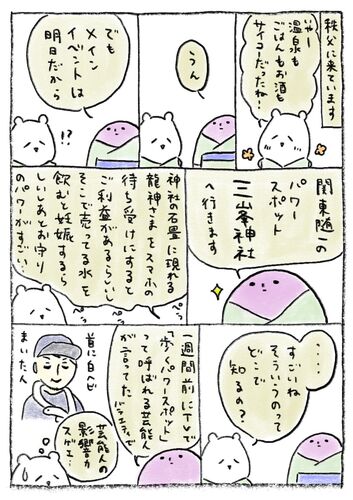 秩父に来ています
いやー
温泉も
ごはんもお酒も
サイコーだったね!
うん
でも
メイン
イベントは
明日だから
!?
関東随一の
パワー
スポット
三峯神社
へ行きます
神社の石畳に現れる
龍神さまをスマホの
待ち受けにすると
ご利益があるらしいし
そこで売ってる水を
飲むと妊娠するら
しいしあとお守り
のパワーがすごい…
ペラ
ペラ
‥‥
すごいね
そういうのって
どこで
知るの?
一週間前にTVで
「歩くパワースポット」
って呼ばれる芸能人
が言ってた
バラエティで
首に白ヘビ
まいたん
芸能人の
影響力
スゲェー